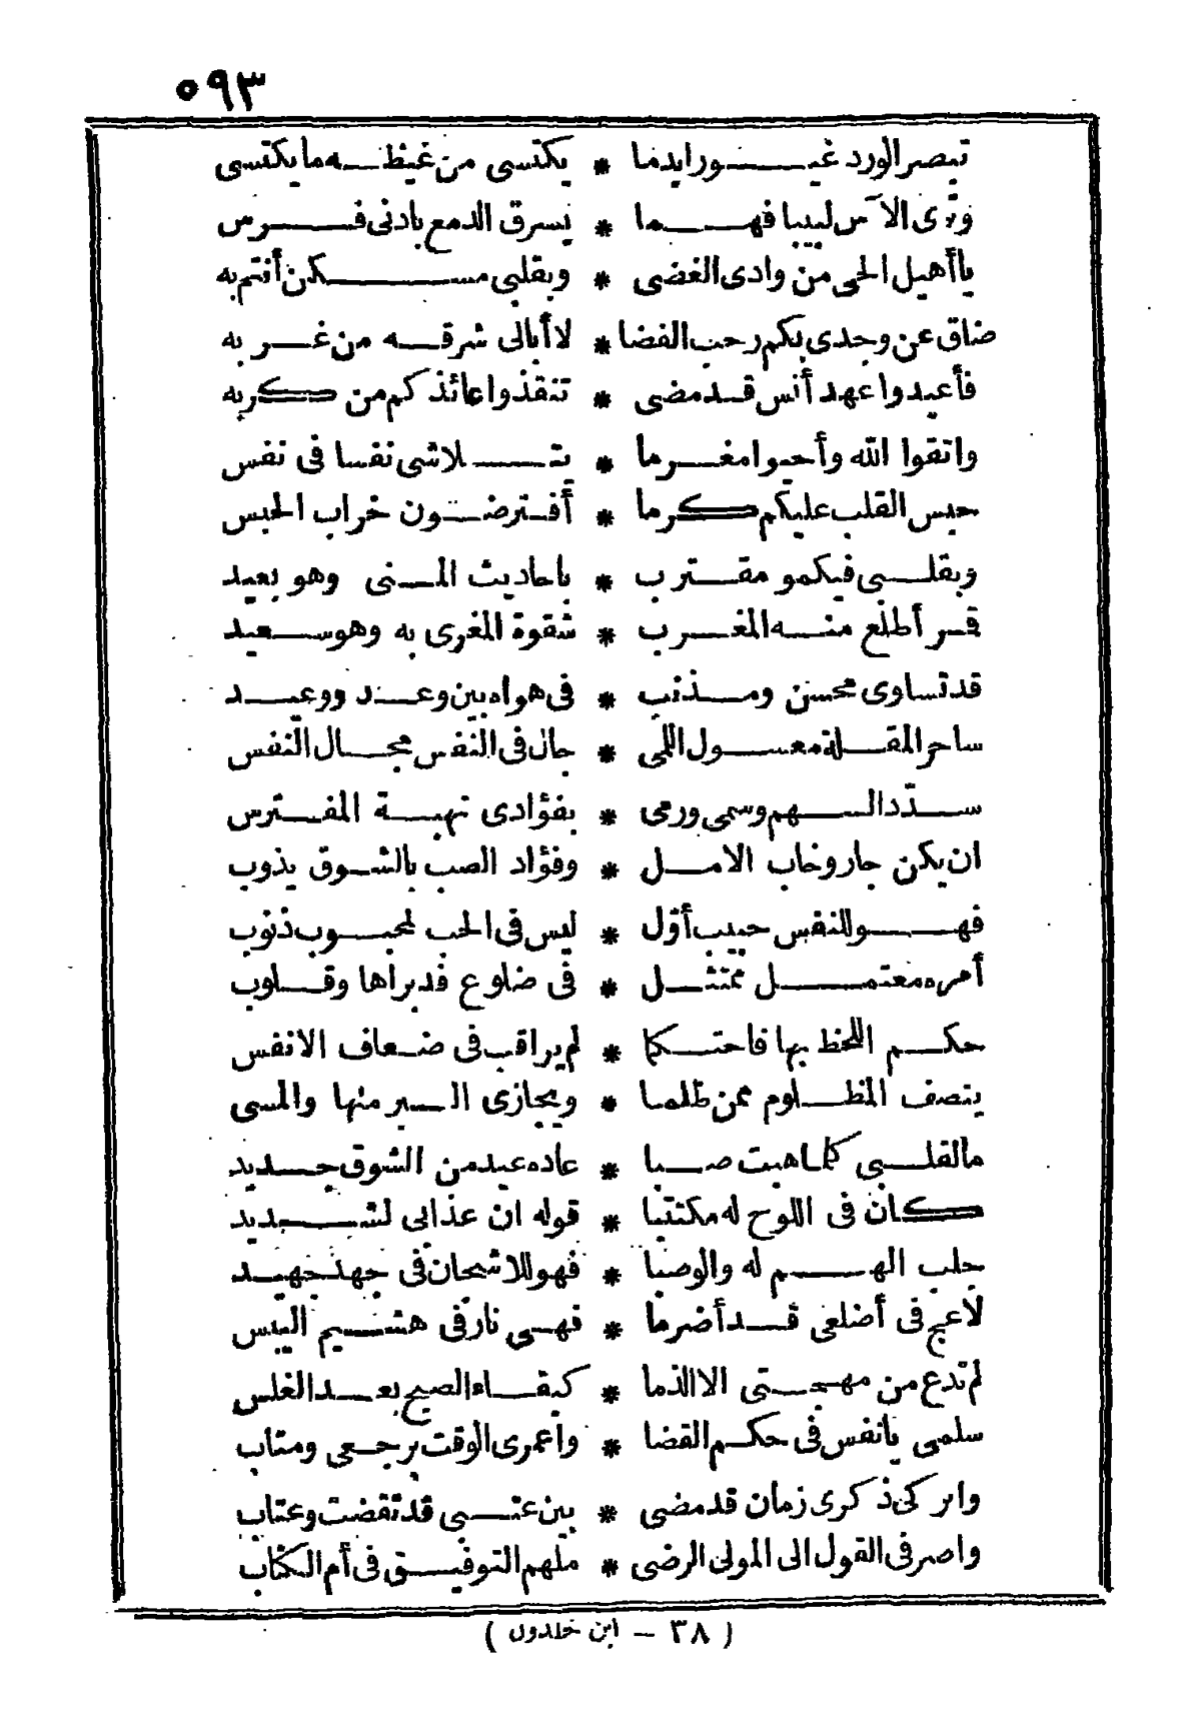 ٥٩٣
تبصر الورد غيورا برما * يكتسى من غيظه ما يكتسى
وترى الآس لبيبا فهما * يسرق الدمع باذنى فرس
يا أهيل الحى من وادى الغضى * وبقلبى مسكن أنتم به
ضاق عن وجدى بكم رحب الفضا * لا أبالى شرقه من غربه
فأعيدوا عهد أنس قد مضى * تنقذوا عائذكم من كربه
واتقوا الله وأحيوا مغرما * يتلاشى نفسا فى نفس
حبس القلب عليكم كرما * أفترضون خراب الحبس
وبقلبى فيكمو مقترب * باحاديث المنى وهو بعيد
قمر أطلع منه المغرب * شقوة المغرى به وهو سعيد
قد تساوى محسن ومذنب * فى هواه بين وعد ووعيد
ساحر المقلة معسول اللمى * جال فى النفس مجال النفس
سدّد السهم وسمى ورمى * بفؤادى نهبة المفترس
ان يكن جار وخاب الامل * وفؤاد الصب بالشوق يذوب
فهو للنفس حبيب أوّل * ليس فى الحب لمحبوب ذنوب
أمره معتمل ممتثل * فى ضلوع قد براها وقلوب
حكم اللحظ بها فاحتكما * لم يراقب فى ضعاف الانفس
ينصف المظلوم ممن ظلما * ويجازى البر منها والمسى
ما لقلبى كلما هبت صبا * عاده عيد من الشوق جديد
كان فى اللوح له مكتتبا * قوله ان عذابى لشديد
جلب الهم له والوصبا * فهو للاشجان فى جهد جهيد
لاعج فى أضلعى قد أضرما * فهى نار فى هشيم اليبس
لم تدع من مهجتى الا الذما * كبقاء الصبح بعد الغلس
سلمى يا نفس فى حكم القضا * واعمرى الوقت برجعى ومتاب
واتركى ذكرى زمان قد مضى * بين عتبى قد تقضت وعتاب
واصرفى القول الى المولى الرضى * ملهم التوفيق فى أم الكتاب
( ٣٨ – ابن خلدون )